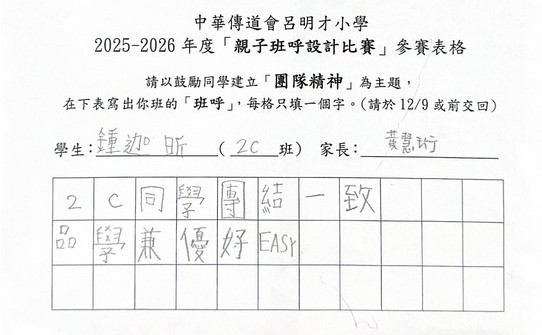 中華傳道會呂明才小學
2025-2026 年度「親子班呼設計比賽」參賽表格
請以鼓勵同學建立「團隊精神」為主題，
在下表寫出你班的「班呼」，每格只填一個字。（請於 12/9 或前交回）
學生：鍾迦昕 （ 2C 班） 家長：黃慧珩
2C同學團結一致
品學兼優好EASY